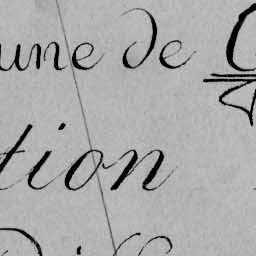 une de
tion